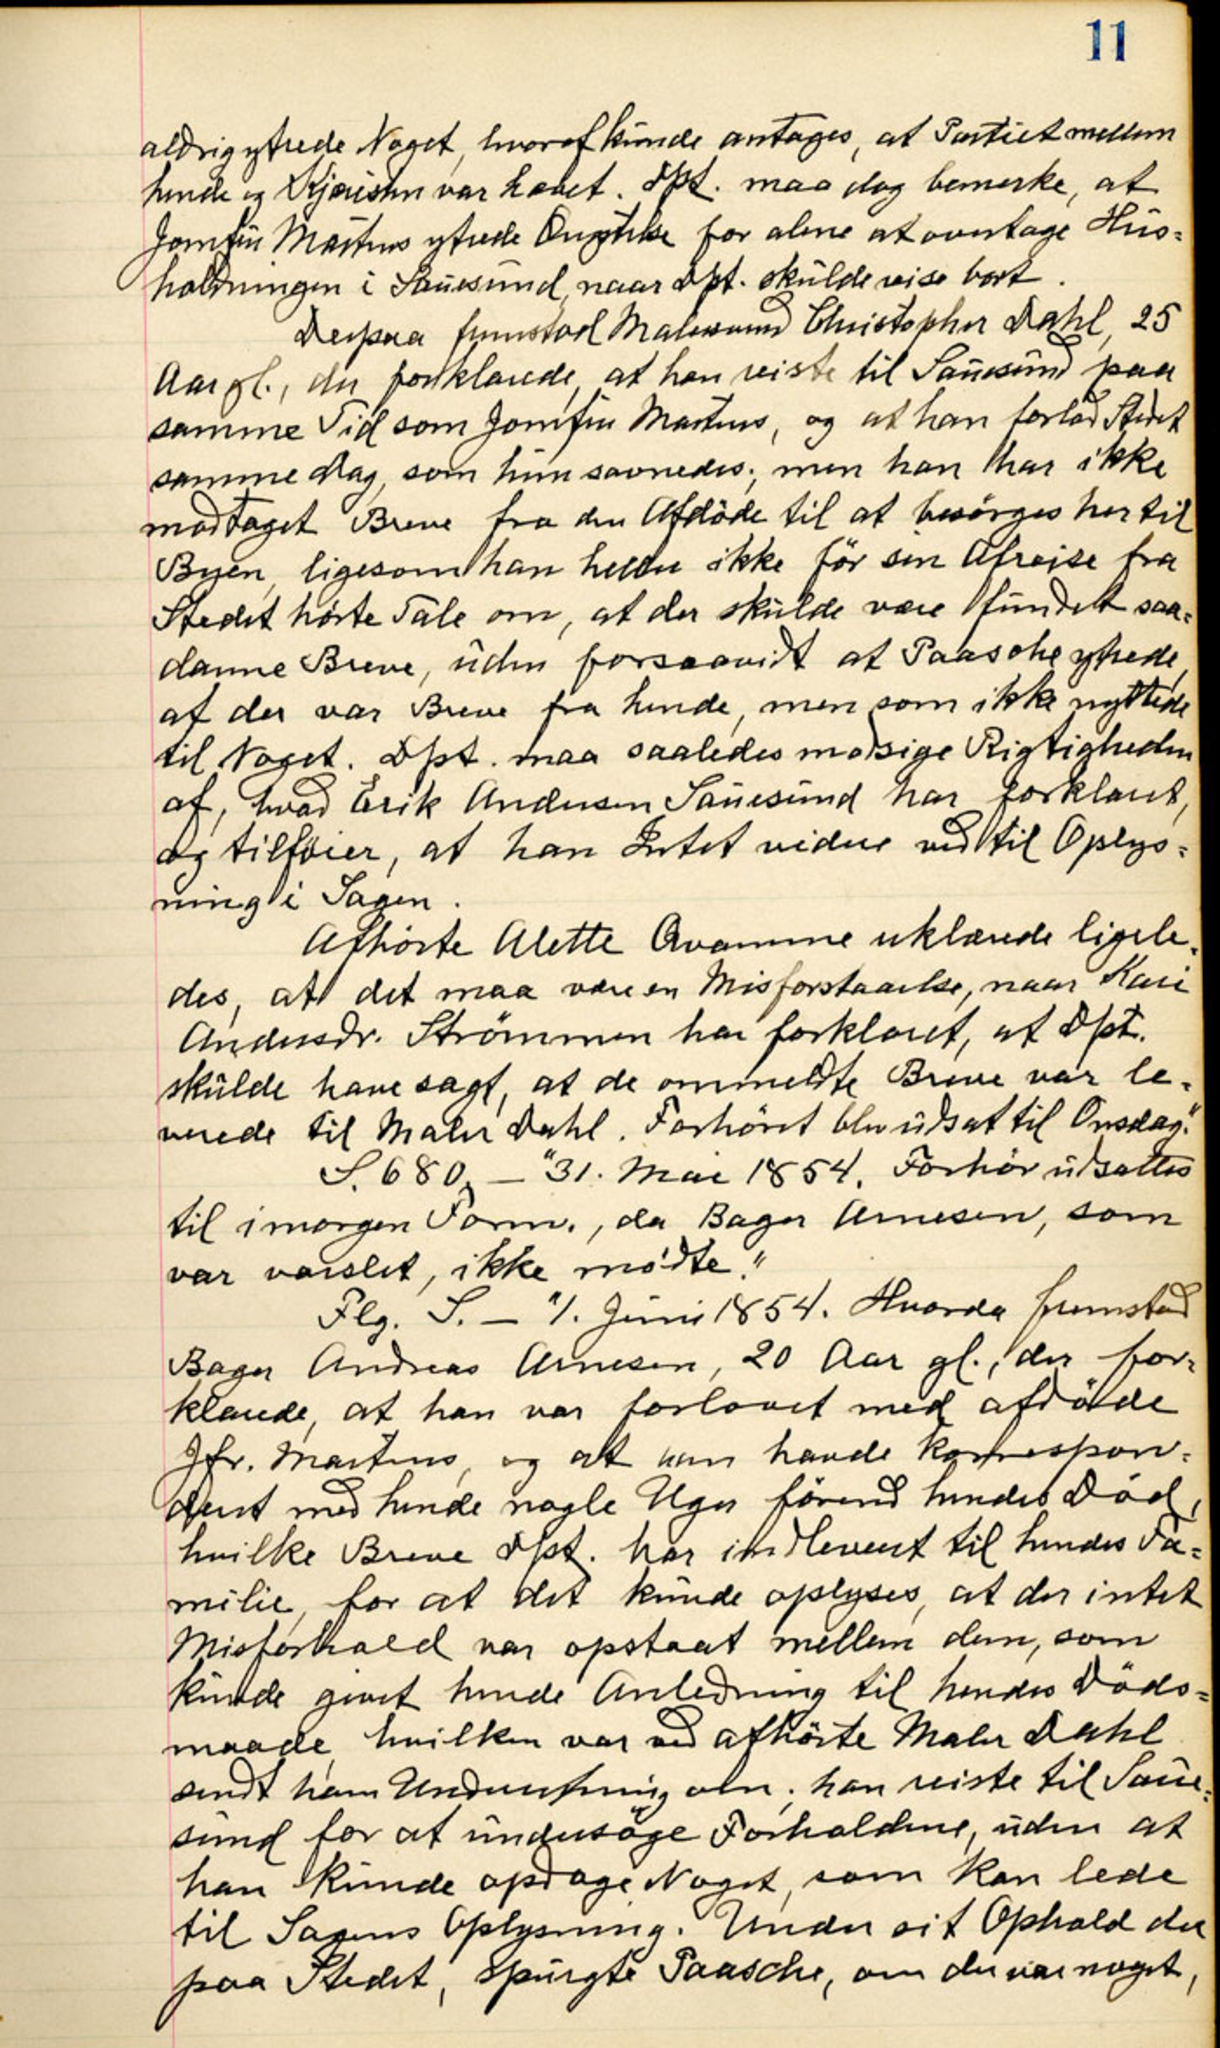 11
aldrig ytrede Noget, hvoraf kunde antages, at Partiet mellem
hende og Kjæresten var hævet. Dpt. maa dog bemærke, at
Jomfru Martens ytrede Ængstelse for alene at overtage Hus-
holdningen i Sauesund, naar Dpt. skulde reise bort.
Derpaa fremstod Malersvend Christopher Dahl, 25
Aar gl., der forklarede, at han reiste til Sauesund paa
samme Tid som Jomfru Martens, og at han forlod Stedet
samme Dag, som hun savnedes; men han har ikke
modtaget Breve fra den Afdöde til at besörges her til
Byen, ligesom han heller ikke för sin Afreise fra
Stedet hörte Tale om, at der skulde være fundet saa-
danne Breve, uden forsaavidt at Paasche ytrede,
at der var Breve fra hende, men som ikke nyttede
til Noget. Dpt. maa saaledes modsige Rigtigheden
af, hvad Erik Andersen Sauesund har forklaret,
og tilföier, at han Intet videre ved til Oplys-
ning i Sagen.
Afhörte Alette Qvamme erklærede ligele-
des, at det maa være en Misforstaaelse, naar Kari
Andersdr. Strömmen har forklaret, at Dpt.
skulde have sagt, at de ommeldte Breve var le-
verede til Maler Dahl. Forhöret blev udsat til Onsdag."
S. 680. – "31. Mai 1854. Forhör udsattes
til imorgen Form., da Bager Arnesen, som
var varslet, ikke mödte."
Flg. S. – "1. Juni 1854. Hvorda fremstod
Bager Andreas Arnesen, 20 Aar gl., der for-
klarede, at han var forlovet med afdöde
Jfr. Martens, og at han havde korrespon-
deret med hende nogle Uger förend hendes Död,
hvilke Breve Dpt. har indleveret til hendes Fa-
milie, for at det kunde oplyses, at der intet
Misforhold var opstaat mellem dem, som
kunde givet hende Anledning til hendes Döds-
maade, hvilken var ved afhörte Maler Dahl
sendt ham Underretning om; han reiste til Saue-
sund for at undersöge Forholdene, uden at
han kunde opdage Noget, som kan lede
til Sagens Oplysning. Under sit Ophold der
paa Stedet, spurgte Paasche, om der var noget,